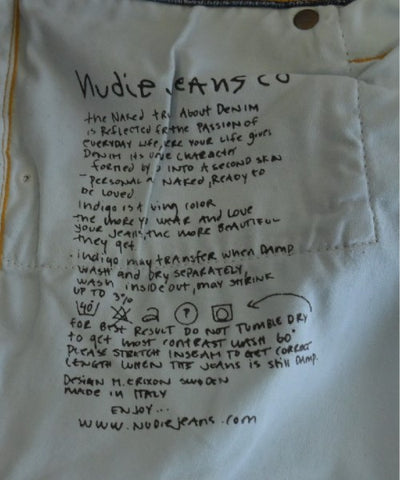 Nudie Jeans Co
the Naked tru About Denim
is Reflected the Passion of
everyday life, your Life gives
Denim its own character
formed by INTO A second skin
- personal Naked, Ready to
be Loved
Indigo is a color
the more wear and Love
your jeans, the more Beautiful
they get
. indigo may transfer when damp
wash and dry separately,
wash inside out, may shrink
up to 3%
40 P
For best result do not tumble dry
to get most contrast wash 60°
Please stretch inseam to get correct
length when the jeans is still damp.
Design M. Erixon Sweden
Made in Italy
Enjoy...
www.nudiejeans.com